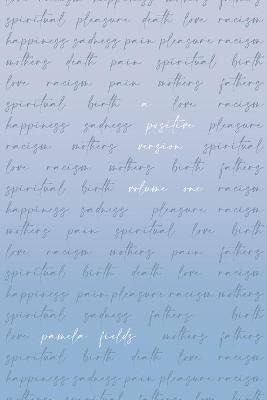 spiritual pleasure death love racism
happiness sadness pain pleasure racism
mothers death pain spiritual birth
love racism pain mothers fathers
spiritual birth a love racism
happiness sadness positive pleasure
racism mothers version spiritual
love racism mothers birth fathers
spiritual birth volume one racism
happiness pleasure racism mothers
mothers pain spiritual love birth
love racism mothers pain fathers
spiritual birth death love racism
happiness pain pleasure racism mothers
spiritual sadness fathers birth
love pamela fields mothers fathers
spiritual birth death love racism
happiness sadness pain pleasure racism